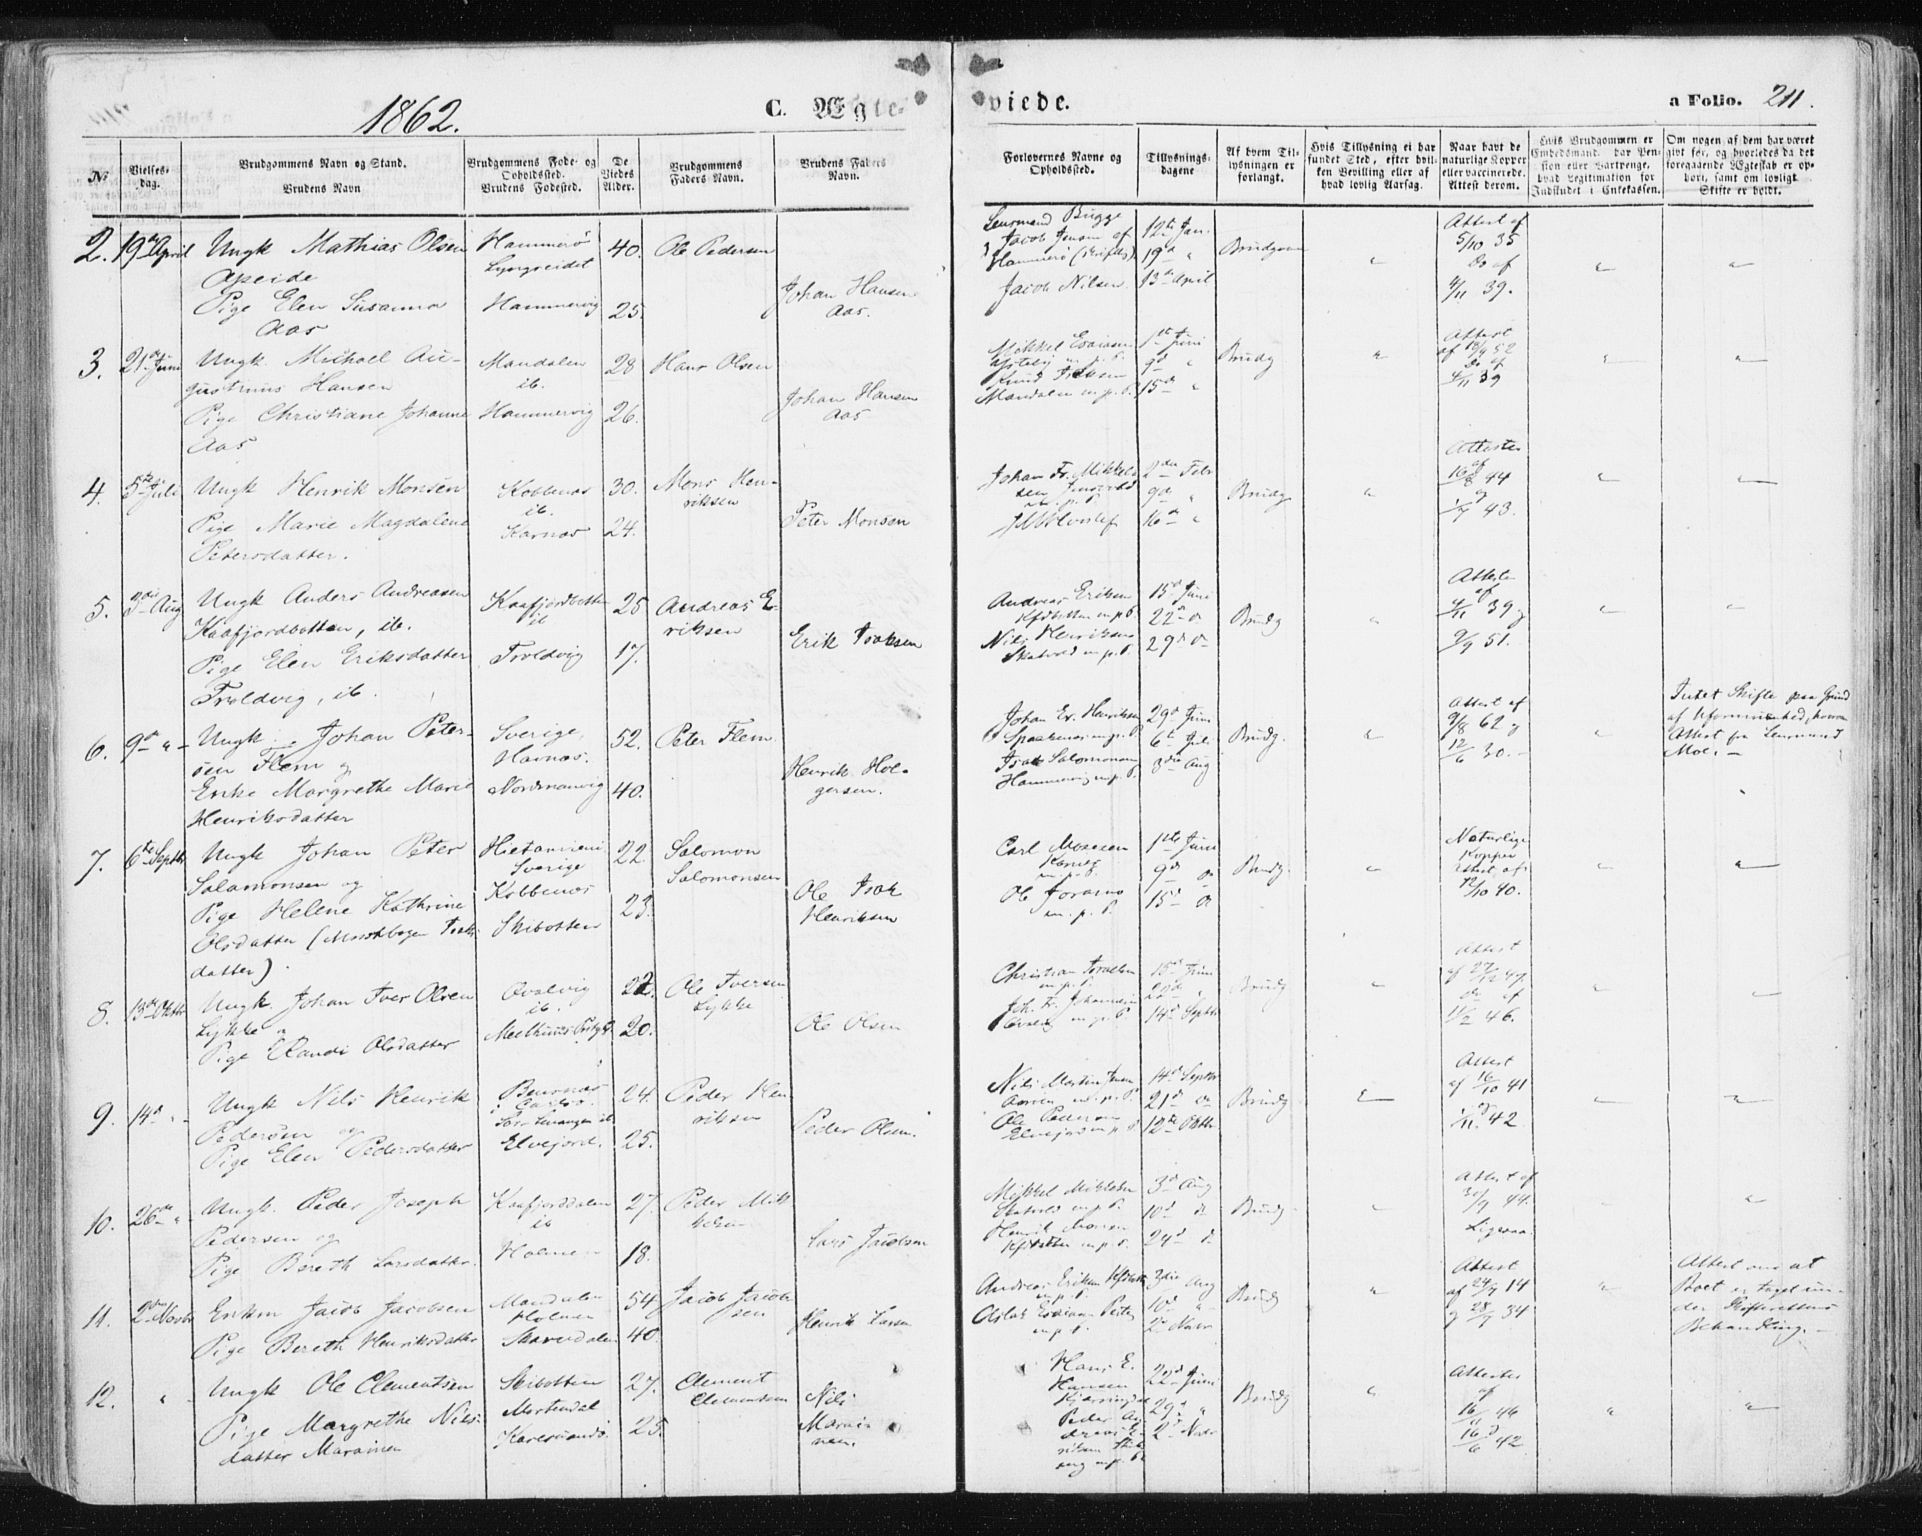 1862.
C. Ægte-
viede.
a Folio. 211.
No
Vielses-
dag.
Brudgommens Navn og Stand.
Brudens Navn
Brudgommens Føde- og
Opholdssted.
Brudens Fødested.
De
Viedes
Alder.
Brudgommens
Faders Navn.
Brudens Faders
Navn.
Forlovernes Navne og
Opholdssted.
Tillysnings-
dagene
Af hvem Til-
lysningen er
forlangt.
Hvis Tillysning ei har
fundet Sted, efter hvil-
ken Bevilling eller af
hvad lovlig Aarsag.
Naar havt de
naturlige Kopper
eller vaccinerede.
Attest derom.
Hvis Brudgommen er
Embedsmand, har Pen-
sion eller Vartpenge,
hvad Legitimation for
Indskudet i Enkekassen.
Om nogen af dem har været
gift før, og hvorledes da det
foregaaende Ægteskab er op-
hørt, samt om lovligt
Skifte er holdt.
2. 19de April Ungk Mathias Olsen
Apeide
Pige Elen Susanna
Aas
Hammerø
Lyngseidet
Hammervig
40.
25.
Ole Pedersen
Johan Hansen
Aas.
Lensmand Bugge
Jacob Jensen af
Hammerø (Skriftl)
Jacob Nilsen
12te Jan.
19de "
13de April
Brudgom
"
Attest af
5/10 35
Do af
4/11 39.
"
"
3. 21de Juni Ungk. Michael Au-
gustinus Hansen
Pige Christiane Johanne
Aas
Mandalen
ib.
Hammervig
28
26.
Hans Olsen
Johan Hansen
Aas
Mikkel Esaiasen
m. p. P.
Mandalen m. p. P.
1ste Juni
9de "
15de "
Brudg
"
Attest
af 18/9 52
Do af
4/11 39
"
"
4. 5te Juli Ungk Henrik Monsen
Pige Marie Magdalene
Petersdatter.
Kobbenæs
ib.
Karnæs
30.
24.
Mons Hen-
riksen
Peter Monsen
Johan Fr. Mikkel-
sen
m. p. P.
2den Feb
9de "
16de "
Brudg
"
Attester
af
16/8 44
&
1/7 43.
"
"
5. 3die Aug Ungk Anders Andreasen
Kaafjordbotten, ib.
Pige Elen Eriksdatter
Troldvig, ib.
Kaafjordbotten
ib
Troldvig
25
17.
Andreas E-
riksen
Erik Isaksen
Andreas Eriksen
Kfdbotten m. p. P.
Nils Henriksen
Skatvold m. p. P.
15de Juni
22de "
29de "
Brudg
"
Atteste
af
4/11 39 &
9/9 51.
"
"
6. 9de " Ungk. Johan Peter-
sen Flem og
Enke Margrethe Marie
Henriksdatter
Sverige,
Harnæs.
Nordmanvig
52.
40.
Peter Flem.
Henrik Hol-
gersen.
Johan Er. Henriksen
m. p. P.
Isak Salomonsen
Hammervig m. p. P.
29de Juni
6te Juli
3die Aug
Brudg.
"
Attest af
9/8 62 &
12/6 30.
"
Intet Skifte paa Grund
af Uformuenhed, hvorom
Attest fra Lensmand
Moe.
7. 6te Septbr Ungk Johan Peter
Salamonsen og
Pige Helene Kathrine
Olsdatter (Isaks-
datter).
Hietaniemi
Sverige
Kobbenæs
Skibotten
22
23.
Salomon
Salomonsen
Ole Isak
Henriksen
Carl Mosesen
Karnes
m. p. P.
Ole Joramo
m. p. P.
1ste Juni
9de do
15de do
Brudg.
"
Naturlige
Kopper
Attest af
12/10 40.
"
"
8. 13de Oktbr Ungk Johan Iver Olsen
Lykke
Pige Randi Olsdatter
Qvalvig
ib.
22.
20.
Ole Iversen
Lykke
Ole Olsen
Christian
m. p. P.
m. p. P.
15de Juni
22de "
14de Septbr
Brudg
"
Attest
af 27/12 47.
do af
11/2 46.
"
"
9. 14de " Ungk Nils Henrik
Pedersen og
Pige Elen Pedersdatter
Elvejord.
24.
25.
Peder Hen
riksen
Peder Olsen.
Nils Martin Jensen
m. p. P.
Ole Pedersen
Elvejord m. p. P.
14de Septbr
21de do
12te Oktbr
Brudg
"
Attest
af 16/10 41
&
1/11 42
"
"
10. 26de " Ungk. Peder Joseph
Pedersen og
Pige Bereth Larsdatter
Kaafjorddalen
ib
Holmen
27.
18.
Peder Mik
kelsen
Lars Jacobsen
Mikkel Mikkelsen
Skatvold m. p. P.
Henrik Monsen
Kfdbotten m. p. P.
3de Aug
10de do
24de do
Brudg
"
Attest af
30/9 44.
Ligesaa
"
"
11. 2den Novbr Enkem Jacob Jacobsen
Pige Bereth Henriksdatter
Mandalen
Holmen
Skardalen
54.
40.
Jacob Jacob
sen
Henrik Larsen
Andreas Eriksen Kfdbotten
m. p. P.
Aslak Esaiasen
m. p. P.
3die Aug
10de "
2de Novbr
Brudg
"
Attest
af 24/7 14
& 28/7 34
"
Attest om at
Boet er taget un-
der Skifterettens
Behandling.
12. " Ungk Ole Clementsen
Pige Margrethe Nils-
datter Marainen
Skibotten
Mortendal
Karesuando
27.
25.
Clement
Clementsen
Nils
Marai-
nen.
Hans E.
Hansen
Peder An
dreas E-
riksen
m. p. P.
22de Juni
29de "
2de Novbr
Brudg
"
Attester
af
16/11 46
&
16/6 42
"
"